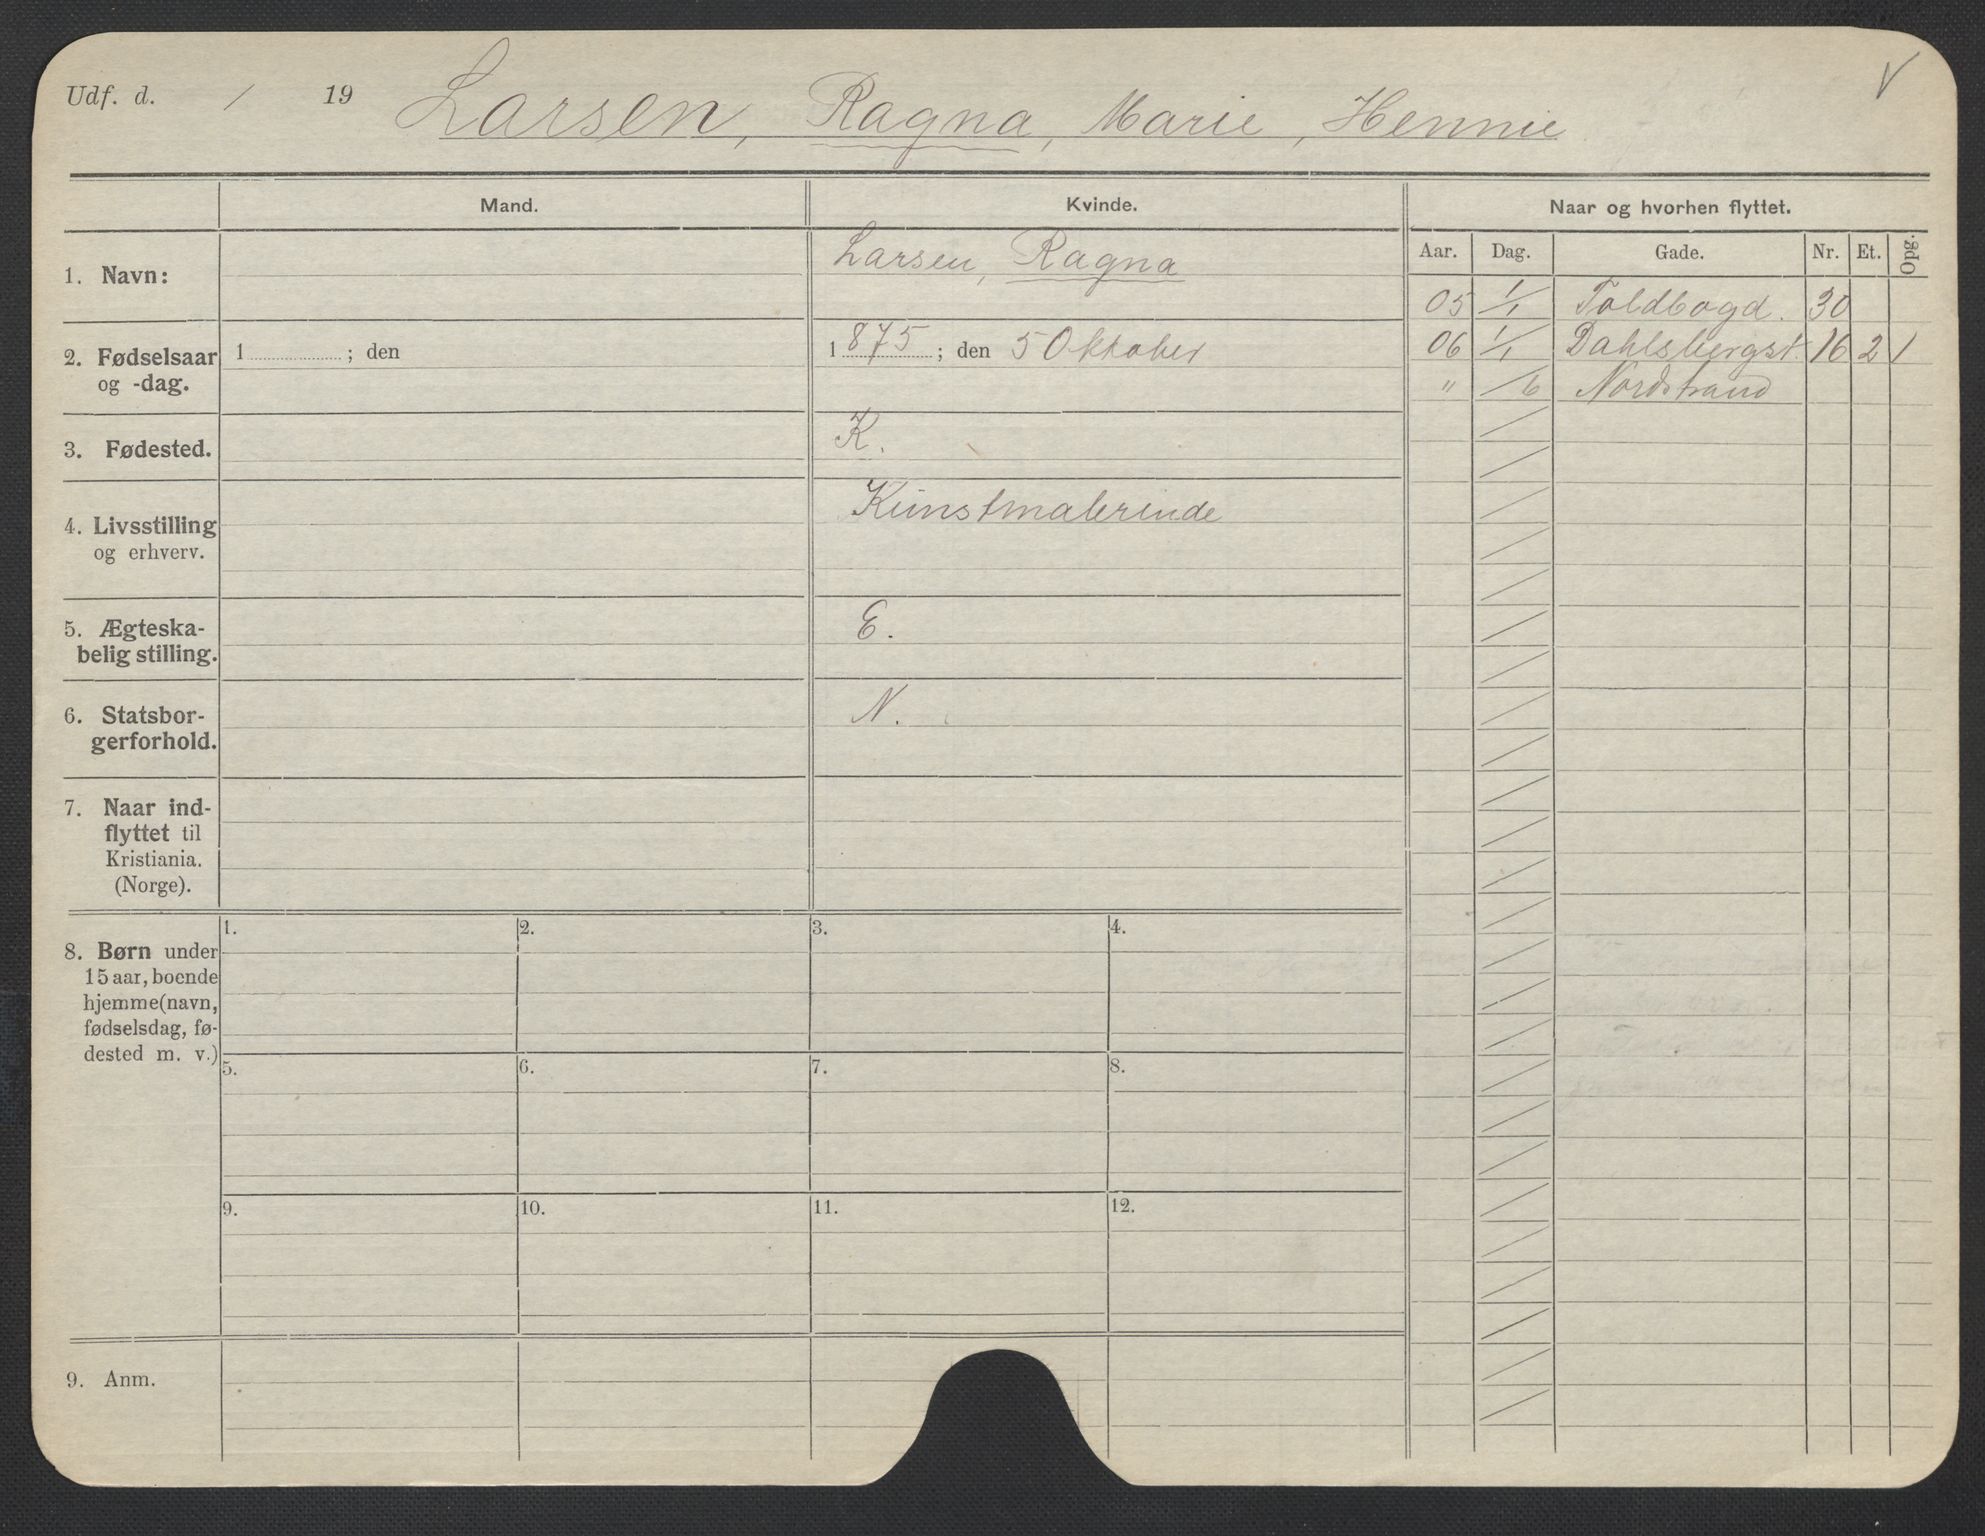 Udf. d. / 19 Larsen, Ragna, Marie, Hennie V
Mand. Kvinde. Naar og hvorhen flyttet.
Aar. Dag. Gade. Nr. Et. Opg.
1. Navn: Larsen, Ragna
05 1/1 Toldbogd. 30
2. Fødselsaar og -dag. 1 ; den 1875 ; den 5 Oktober
06 1/1 Dahlsbergst. 16 2 1
" /6 Nordstrand
3. Fødested. K.
4. Livsstilling og erhverv. Kunstmalerinde
5. Ægteska-
belig stilling. E.
6. Statsbor-
gerforhold. N.
7. Naar ind-
flyttet til
Kristiania.
(Norge).
8. Børn under
15 aar, boende
hjemme (navn,
fødselsdag, fø-
dested m. v.)
1. 2. 3. 4.
5. 6. 7. 8.
9. 10. 11. 12.
9. Anm.